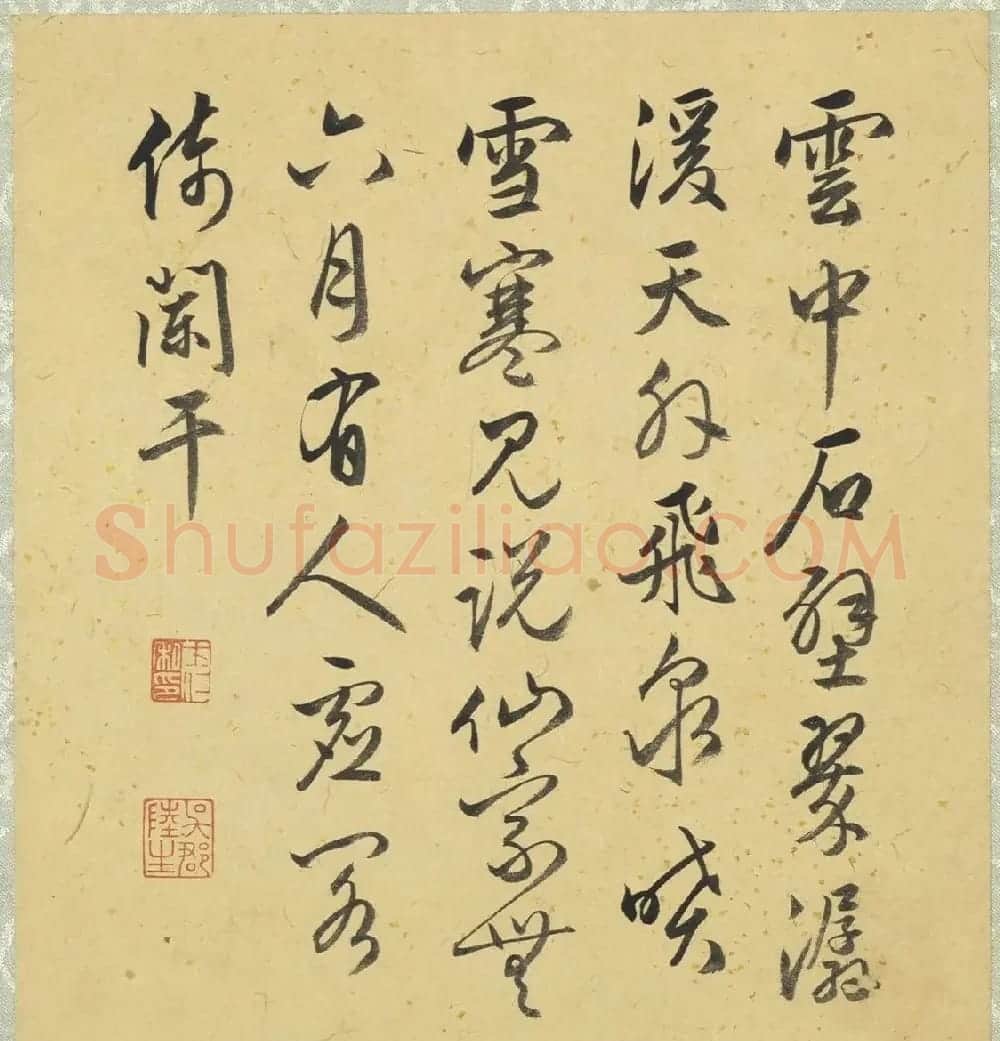 雲中石壁翠潺
湲天外飛泉噴
雪寒見說仙家無
六月有人虛閣
倚闌干
吳郡
陸
Shufaziliao.COM